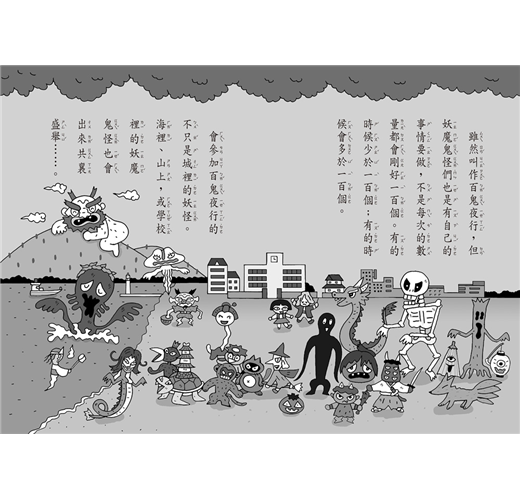 雖然叫作百鬼夜行，但
妖魔鬼怪們也是有自己的
事情要做，不是每次的數
量都會剛好一百個。有的
時候少於一百個；有的時
候會多於一百個。
會參加百鬼夜行的
不只是城裡的妖怪。
海裡、山上，或學校
裡的妖魔
鬼怪也會
出來共襄
盛舉……。